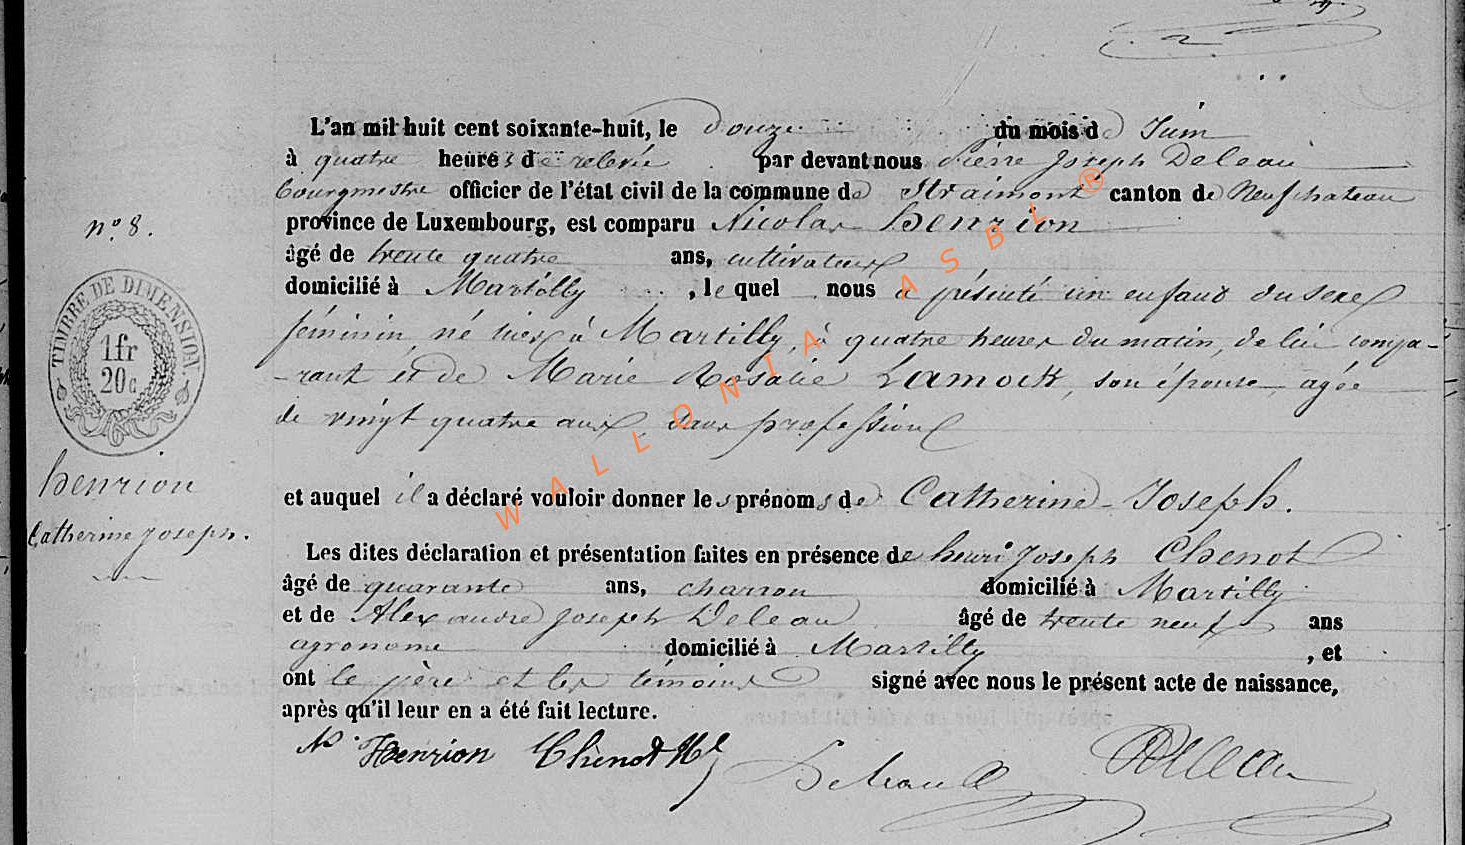 L'an mil huit cent soixante-huit, le douze du mois de Juin
à quatre heures de relevée par devant nous Pierre Joseph Deleau
bourgmestre officier de l'état civil de la commune de Straimont canton de Neufchateau
province de Luxembourg, est comparu Nicolas Henrion
âgé de trente quatre ans, cultivateur
domicilié à Martilly, lequel nous a présenté un enfant du sexe
féminin, né hier à Martilly, à quatre heures du matin, de lui compa-
-rant et de Marie Rosalie Lamock, son épouse, agée
de vingt quatre ans, sans profession
et auquel il a déclaré vouloir donner les prénoms de Catherine-Joseph.
Les dites déclaration et présentation faites en présence de henri Joseph Chenot
âgé de quarante ans, charron domicilié à Martilly
et de Alexandre Joseph Deleau âgé de trente neuf ans
agronome domicilié à Martilly, et
ont le père et les témoins signé avec nous le présent acte de naissance,
après qu'il leur en a été fait lecture.
N. Henrion Chenot Deleau
n.° 8.
TIMBRE DE DIMENSION
1fr
20c
henrion
Catherine Joseph.
WALLONIA ASBL ®